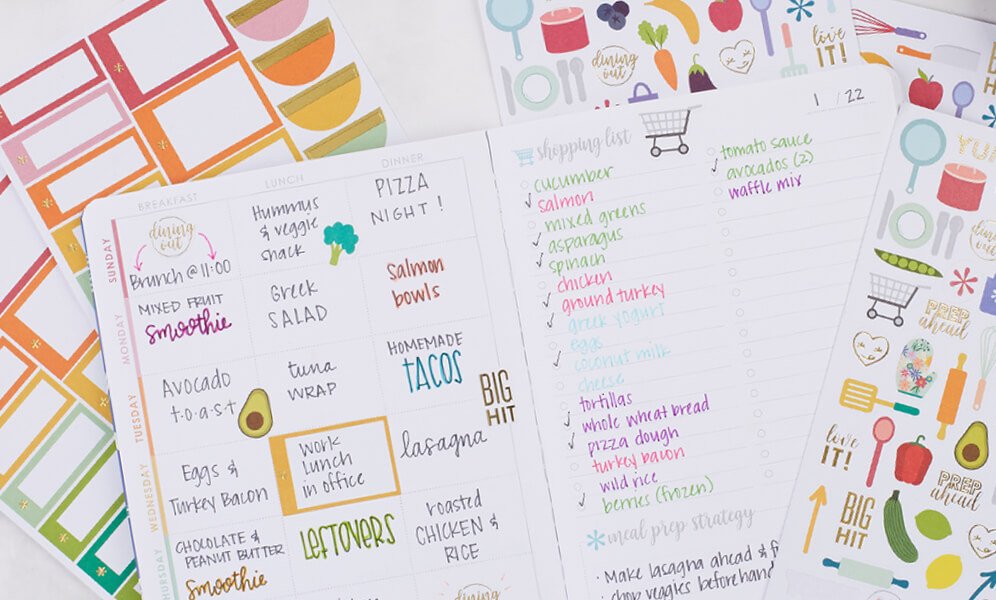 BREAKFAST
LUNCH
DINNER
SUNDAY
dining out
Brunch @ 11:00
Hummus
& veggie
snack
PIZZA
NIGHT!
MONDAY
MIXED FRUIT
Smoothie
Greek
SALAD
Salmon
bowls
TUESDAY
Avocado
toast
tuna
WRAP
HOMEMADE
tacos
BIG
HIT
WEDNESDAY
Eggs &
Turkey Bacon
work
lunch
in office
lasagna
THURSDAY
CHOCOLATE &
PEANUT BUTTER
Smoothie
LEFTOVERS
roasted
CHICKEN &
RICE
dining
shopping list
1 / 22
cucumber
salmon
mixed greens
asparagus
spinach
chicken
ground turkey
greek yogurt
eggs
coconut milk
cheese
tortillas
whole wheat bread
pizza dough
turkey bacon
wild rice
berries (frozen)
tomato sauce
avocados (2)
waffle mix
meal prep strategy
· Make lasagna ahead & f
· chop veggies beforehand
dining
out
love
IT!
YUM
PREP
ahead
love
IT!
PREP
ahead
BIG
HIT